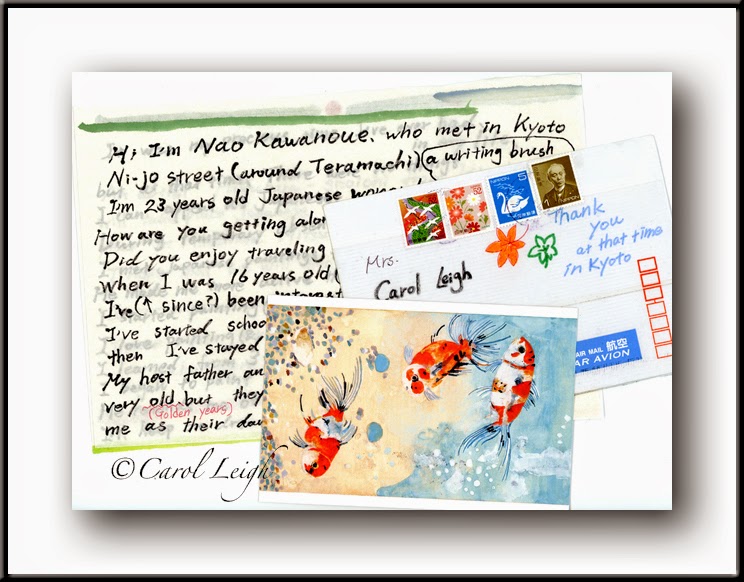 Hi, I'm Nao Kawanoue, who met in Kyoto
Ni-jo street (around Teramachi) (a writing brush
I'm 23 years old Japanese
How are you getting
Did you enjoy traveling
when I was 16 years old (
I've (↑ since?) been
I've started
then I've stayed
My host father
very old but they
(Golden years)
me as their
NIPPON
5
NIPPON
Thank
you
at that time
in Kyoto
Mrs.
Carol Leigh
AIR MAIL 航空
PAR AVION
© Carol Leigh